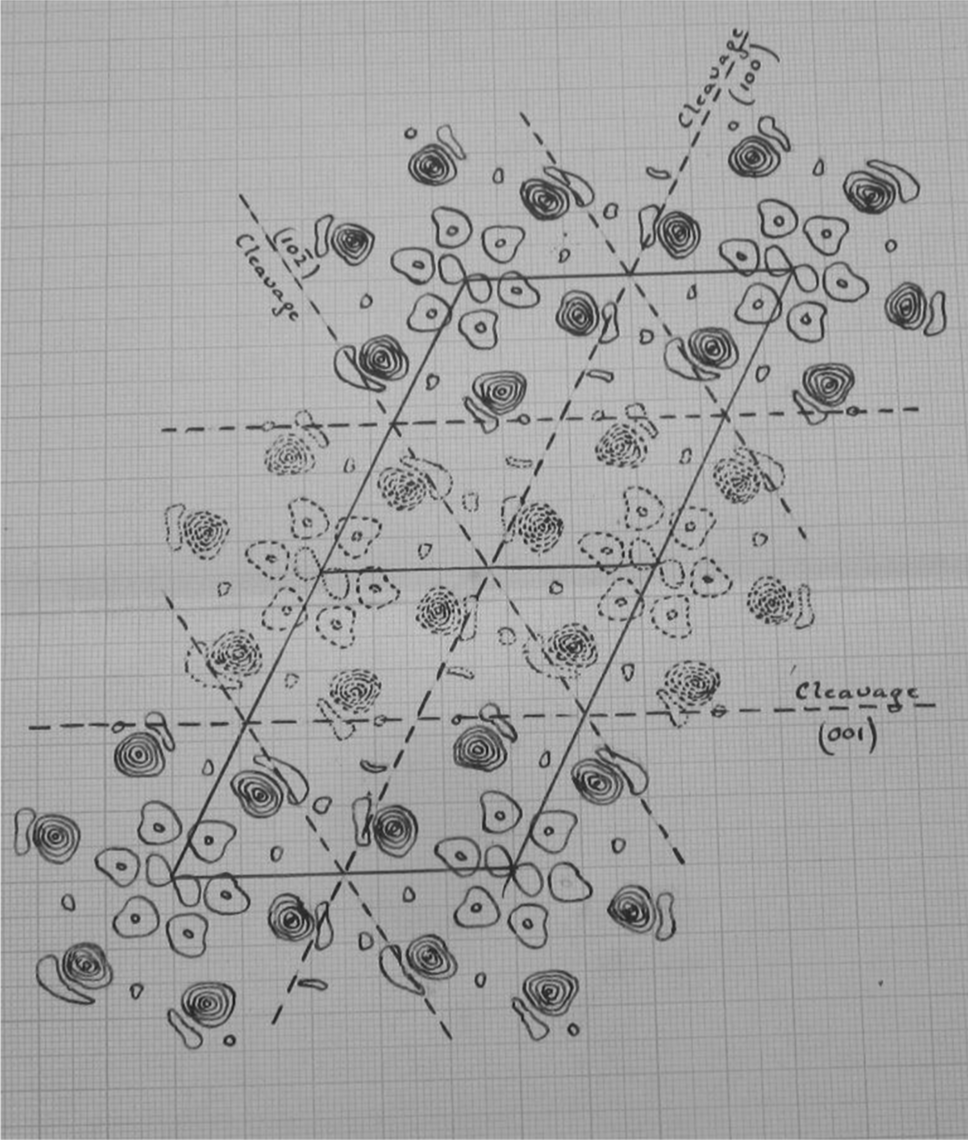 Cleavage
(100)
(102̄)
Cleavage
Cleavage
(001)